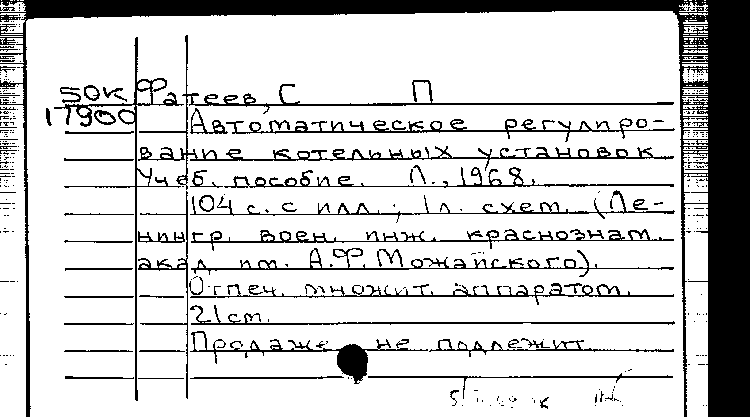 50К Фатеев, С П
17900 Автоматическое регулиро-
вание котельных установок
Учеб. пособие. Л., 1968.
104 с. с илл.; 1 л. схем. (Ле-
нингр. воен. инж. краснознам.
акад. им. А.Ф. Можайского).
Отпеч. множит. аппаратом.
21 cm.
Продаже не подлежит